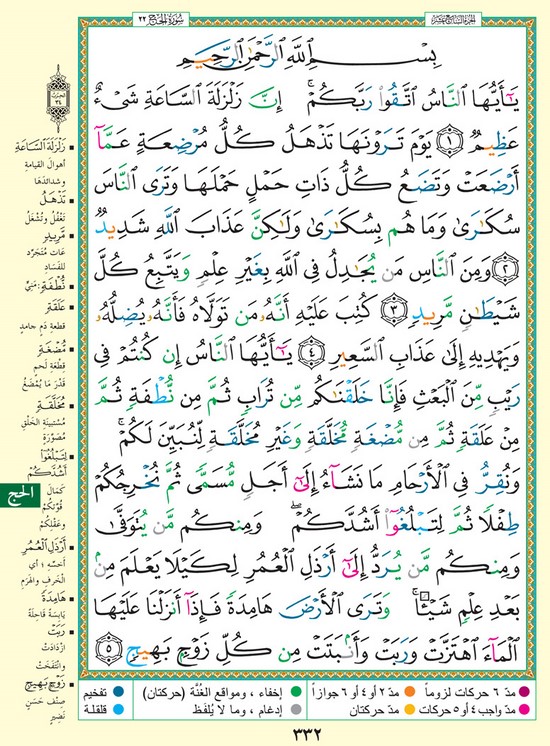 سُورَةُ الحَجِّ ٢٢
الجزء السابع عشر
بِسْمِ ٱللَّهِ ٱلرَّحْمَٰنِ ٱلرَّحِيمِ
يَـٰٓأَيُّهَا ٱلنَّاسُ ٱتَّقُوا۟ رَبَّكُمْ ۚ إِنَّ زَلْزَلَةَ ٱلسَّاعَةِ شَىْءٌ
عَظِيمٌ ﴿١﴾ يَوْمَ تَرَوْنَهَا تَذْهَلُ كُلُّ مُرْضِعَةٍ عَمَّآ
أَرْضَعَتْ وَتَضَعُ كُلُّ ذَاتِ حَمْلٍ حَمْلَهَا وَتَرَى ٱلنَّاسَ
سُكَـٰرَىٰ وَمَا هُم بِسُكَـٰرَىٰ وَلَـٰكِنَّ عَذَابَ ٱللَّهِ شَدِيدٌ
﴿٢﴾ وَمِنَ ٱلنَّاسِ مَن يُجَـٰدِلُ فِى ٱللَّهِ بِغَيْرِ عِلْمٍ وَيَتَّبِعُ كُلَّ
شَيْطَـٰنٍ مَّرِيدٍ ﴿٣﴾ كُتِبَ عَلَيْهِ أَنَّهُۥ مَن تَوَلَّاهُ فَأَنَّهُۥ يُضِلُّهُۥ
وَيَهْدِيهِ إِلَىٰ عَذَابِ ٱلسَّعِيرِ ﴿٤﴾ يَـٰٓأَيُّهَا ٱلنَّاسُ إِن كُنتُمْ فِى
رَيْبٍ مِّنَ ٱلْبَعْثِ فَإِنَّا خَلَقْنَـٰكُم مِّن تُرَابٍ ثُمَّ مِن نُّطْفَةٍ ثُمَّ
مِنْ عَلَقَةٍ ثُمَّ مِن مُّضْغَةٍ مُّخَلَّقَةٍ وَغَيْرِ مُخَلَّقَةٍ لِّنُبَيِّنَ لَكُمْ ۚ
وَنُقِرُّ فِى ٱلْأَرْحَامِ مَا نَشَآءُ إِلَىٰٓ أَجَلٍ مُّسَمًّى ثُمَّ نُخْرِجُكُمْ
طِفْلًا ثُمَّ لِتَبْلُغُوٓا۟ أَشُدَّكُمْ ۖ وَمِنكُم مَّن يُتَوَفَّىٰ
وَمِنكُم مَّن يُرَدُّ إِلَىٰٓ أَرْذَلِ ٱلْعُمُرِ لِكَيْلَا يَعْلَمَ مِنۢ
بَعْدِ عِلْمٍ شَيْـًٔا ۚ وَتَرَى ٱلْأَرْضَ هَامِدَةً فَإِذَآ أَنزَلْنَا عَلَيْهَا
ٱلْمَآءَ ٱهْتَزَّتْ وَرَبَتْ وَأَنۢبَتَتْ مِن كُلِّ زَوْجٍۭ بَهِيجٍ ﴿٥﴾
الحزب
٣٤
زَلْزَلَةَ ٱلسَّاعَةِ
أهوال القيامة
وشدائدها
تَذْهَلُ
تَغْفُلُ وتُشْغَلُ
مَّرِيدٍ
عات متجرّد
للفساد
نُّطْفَةٍ: مَنِيٍّ
عَلَقَةٍ
قطعة دَم جامدٍ
مُّضْغَةٍ
قطعة لحم
قَدْرَ ما يُمْضَغُ
مُّخَلَّقَةٍ
مُسْتَبِينَة الخَلْقِ
مُصَوَّرةٍ
لِتَبْلُغُوٓا۟
أَشُدَّكُمْ
كمال
قوّتكم
وعقلكم
أَرْذَلِ ٱلْعُمُرِ
أخسّه ؛ أي
الخرف والهرم
هَامِدَةً
يابسة قاحلة
رَبَتْ
ازدادت
وانتفخت
زَوْجٍۭ بَهِيجٍ
صنف حَسَنٍ
نَضِيرٍ
الحج
مدّ ٦ حركات لزوماً
مدّ ٢ أو ٤ أو ٦ جوازاً
إخفاء ، ومواقع الغُنَّة (حركتان)
تفخيم
مدّ واجب ٤ أو ٥ حركات
مدّ حركتان
إدغام ، وما لا يُلفَظ
قلقلة
٣٣٢